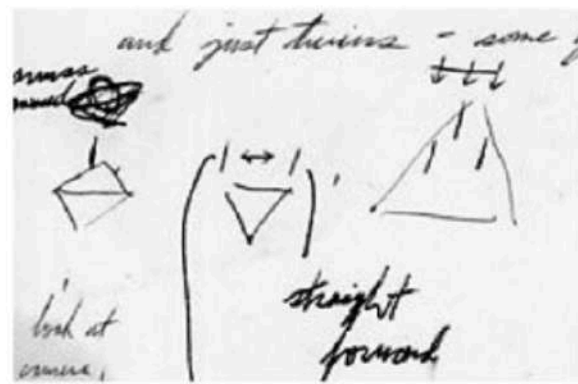 and just twins - some
look at
camera,
straight
forward